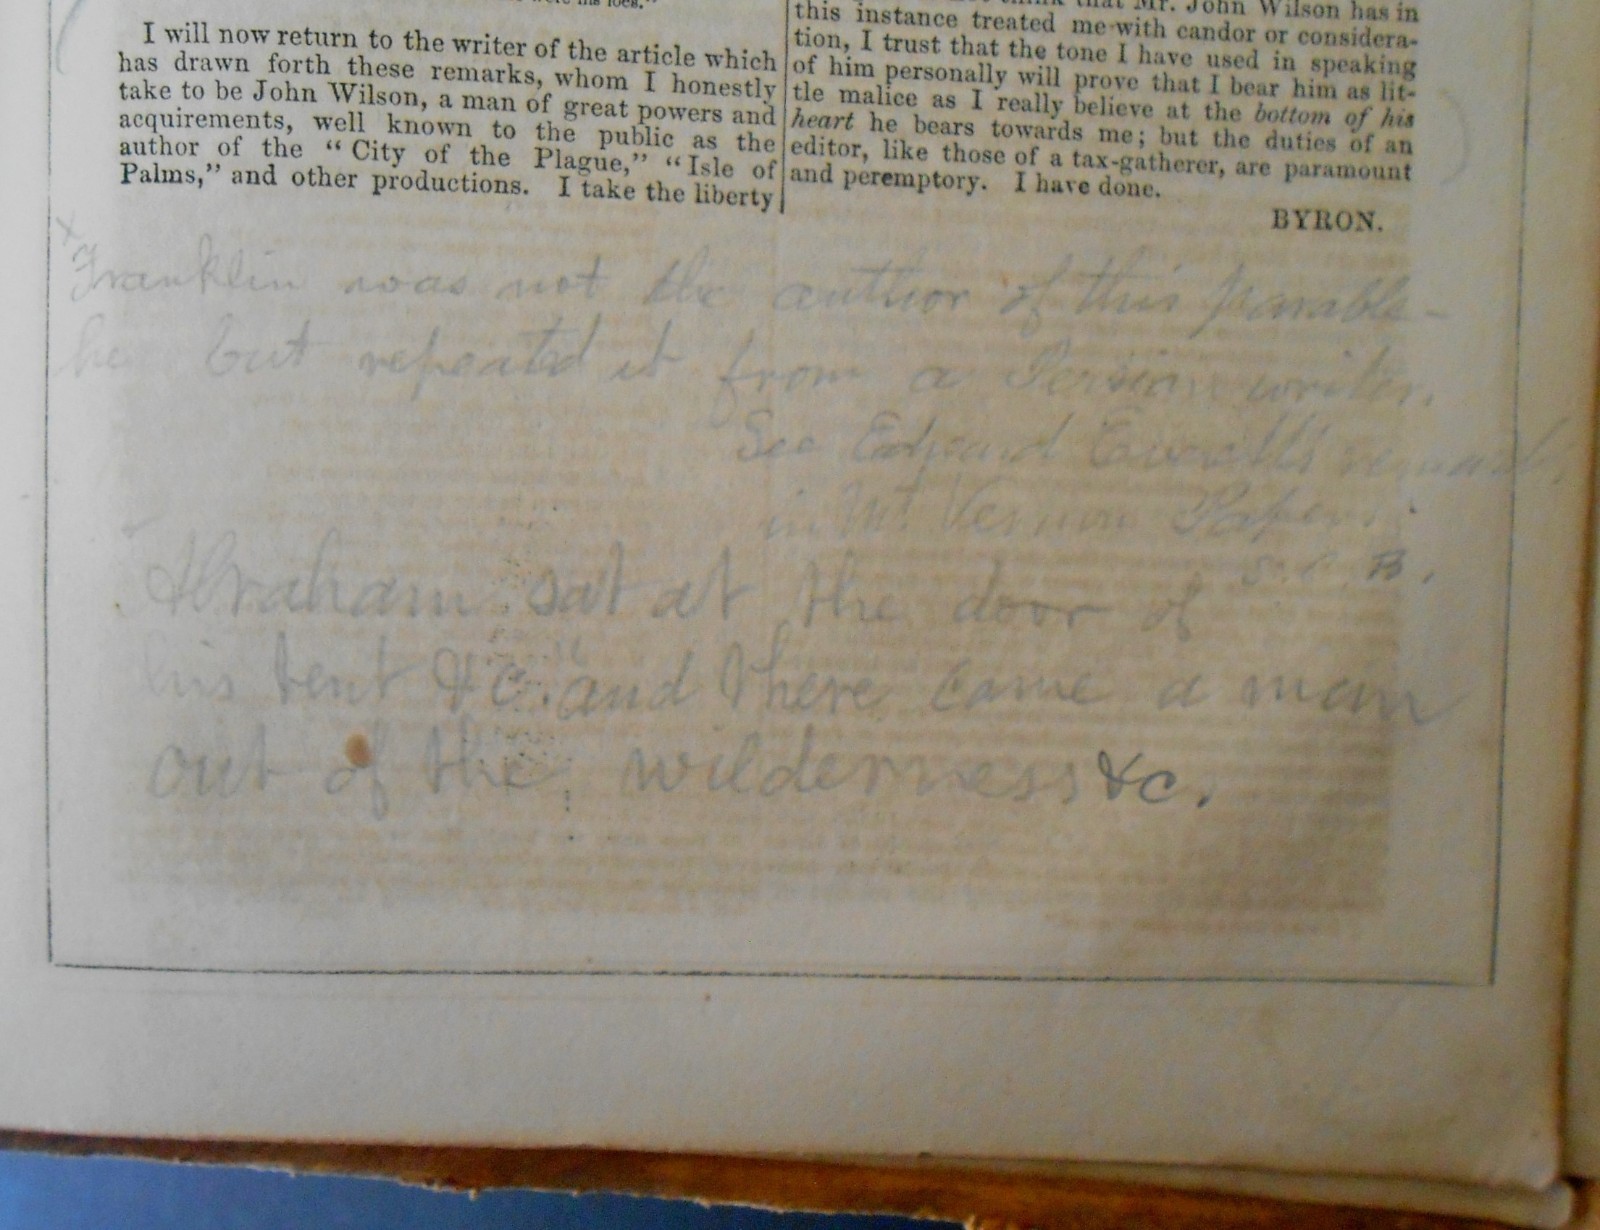 I will now return to the writer of the article which
has drawn forth these remarks, whom I honestly
take to be John Wilson, a man of great powers and
acquirements, well known to the public as the
author of the “ City of the Plague,” “ Isle of
Palms,” and other productions. I take the liberty
that Mr. John Wilson has in
this instance treated me with candor or considera-
tion, I trust that the tone I have used in speaking
of him personally will prove that I bear him as lit-
tle malice as I really believe at the bottom of his
heart he bears towards me; but the duties of an
editor, like those of a tax-gatherer, are paramount
and peremptory. I have done.
BYRON.
x
Franklin was not the author of this parable -
he but repeated it from a Persian writer.
See Edward Everett's remarks
in Mt Vernon Papers.
S. C. B.
Abraham sat at the door of
his tent &c." and there came a man
out of the wilderness &c.